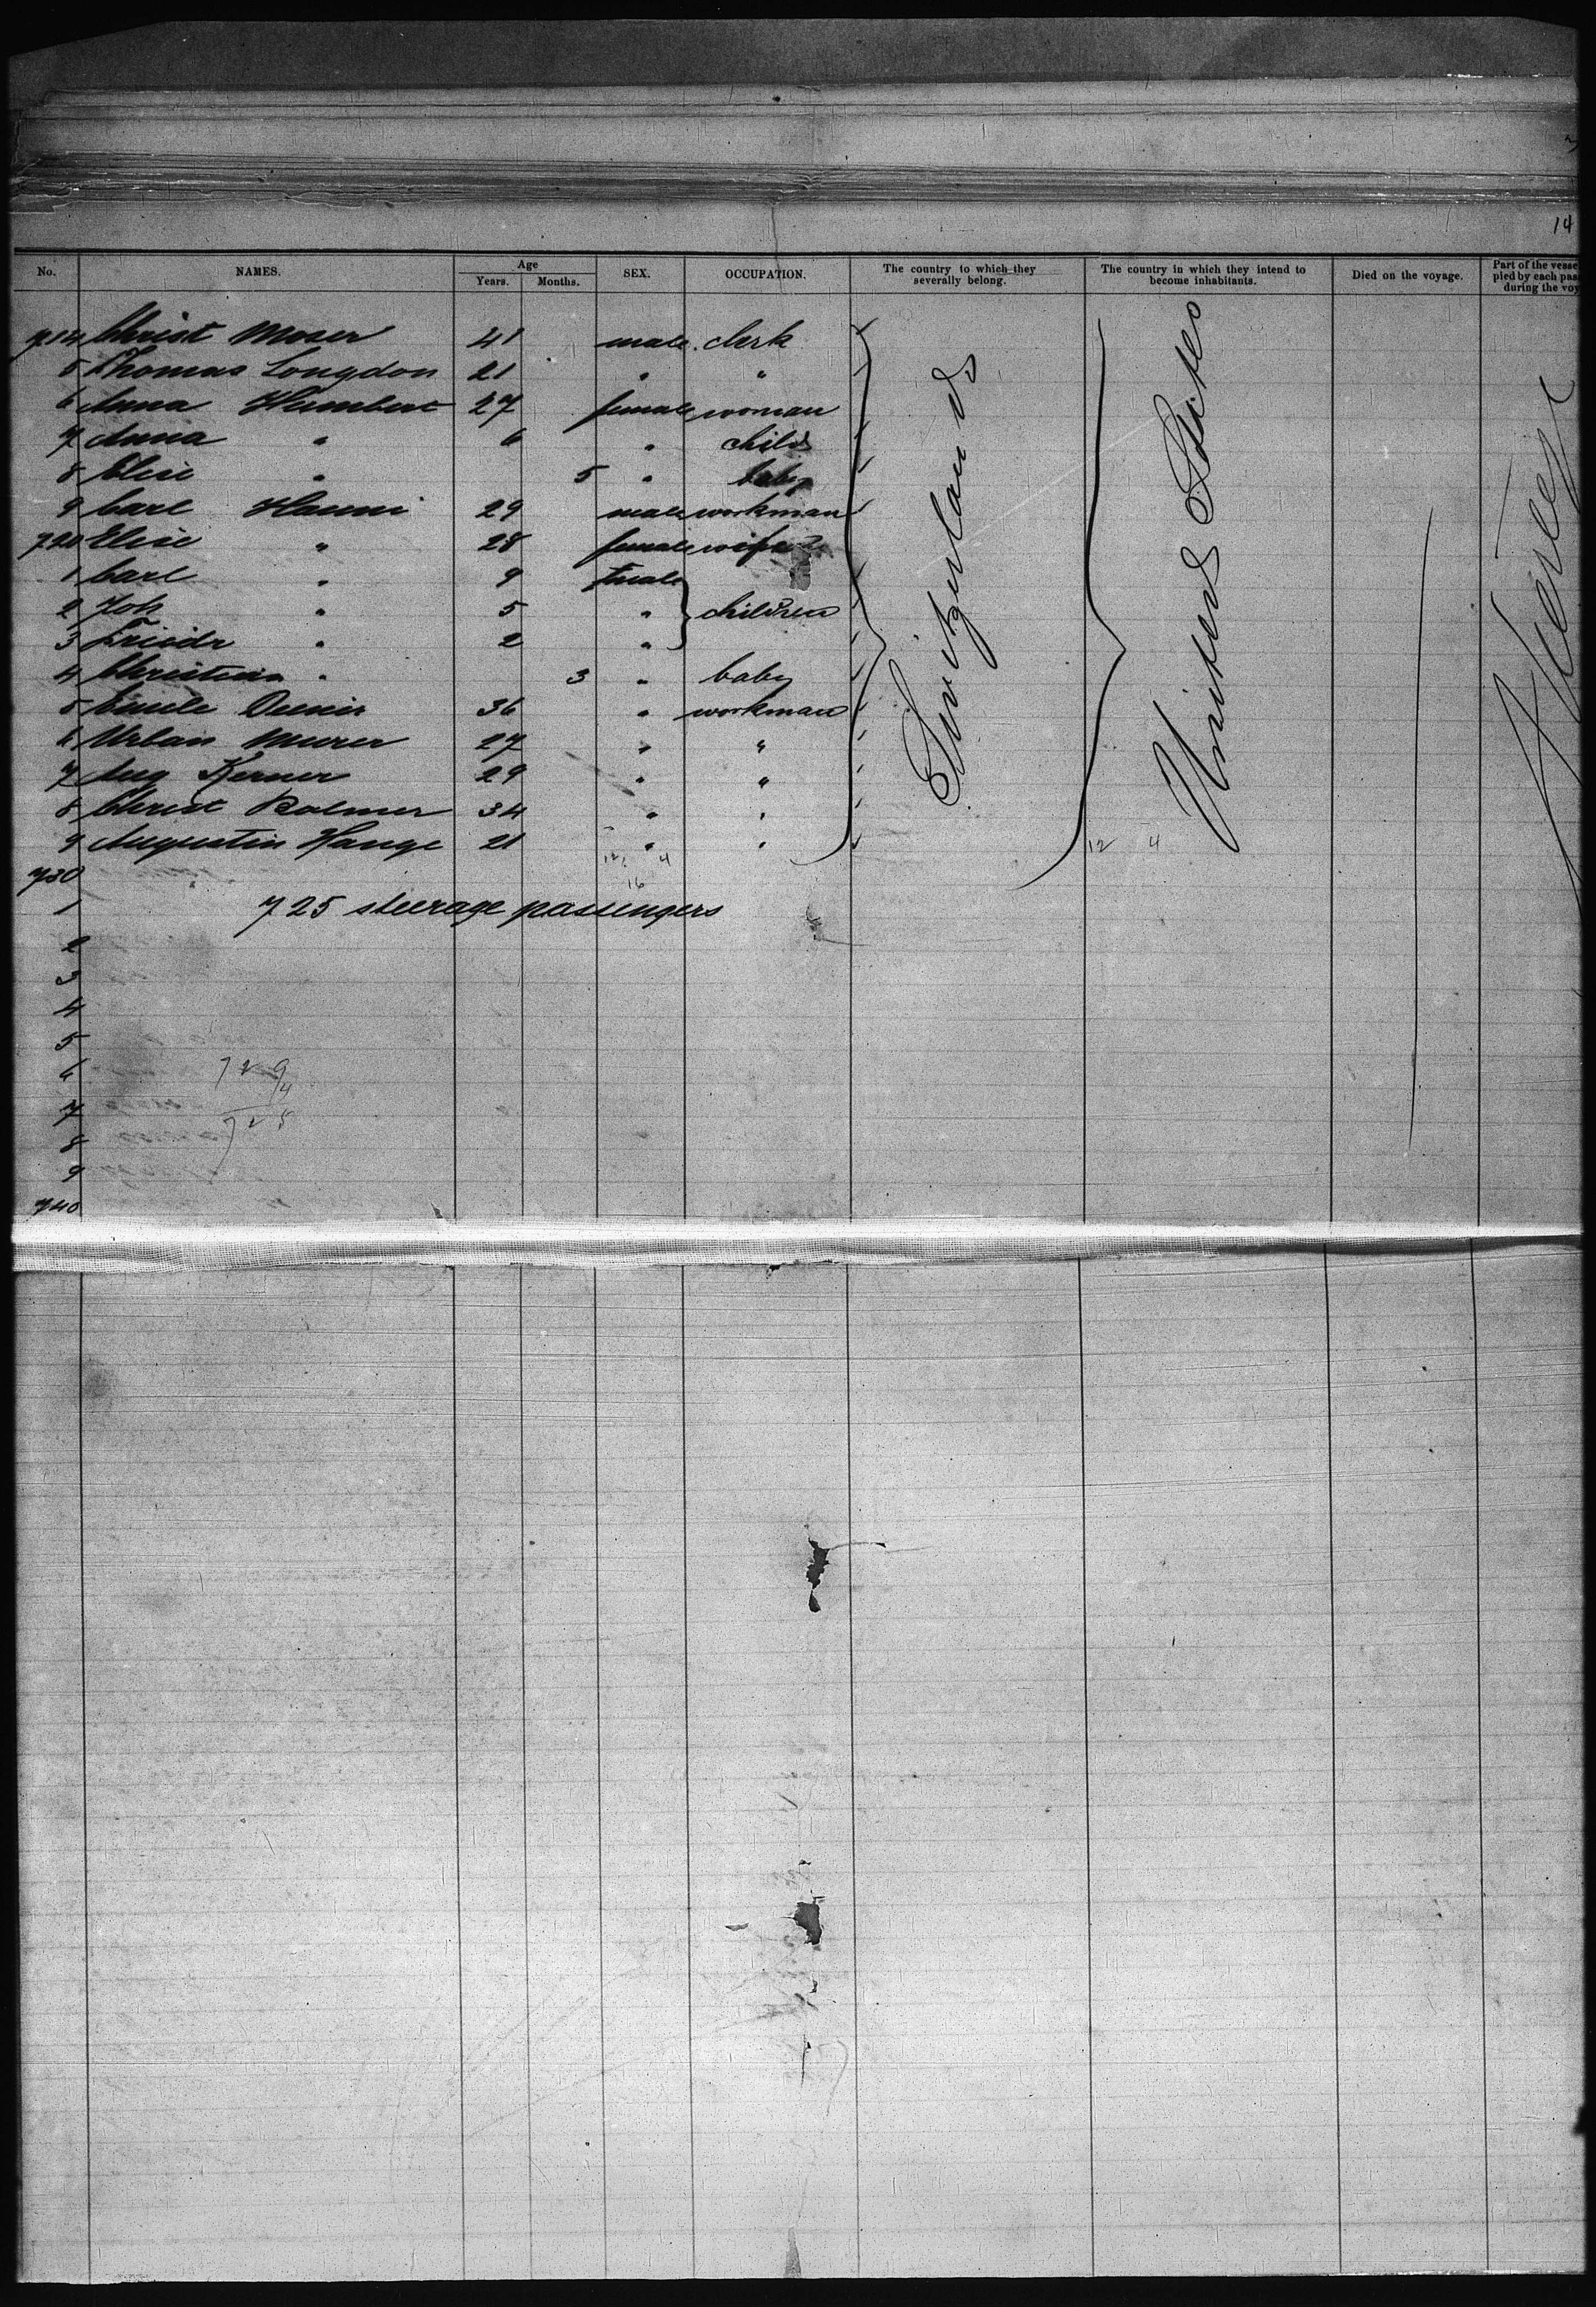 14
No. NAMES. Age Years. Months. SEX. OCCUPATION. The country to which they severally belong. The country in which they intend to become inhabitants. Died on the voyage. Part of the vesse pied by each pas during the voy
714 Christ Moser 41 male clerk
5 Thomas Longdon 21 " "
6 Anna Humbert 27 female woman
7 Anna " 6 " child
8 Elise " 5 " baby
9 Carl Hanni 29 male workman
720 Elise " 28 female wife
1 Carl " 9 male
2 Joh " 5 " children
3 Friedr " 2 "
4 Christina " 3 " baby
5 Emile 36 " workman
6 Urban Murer 27 " "
7 Aug Kerner 29 " "
8 Christ Balmer 34 " "
9 Augustin Hauge 21 " "
Switzerland
United States
12 4
12 4
16
730
1 725 steerage passengers
2
3
4
5
6 729
4
7 725
8
9
740